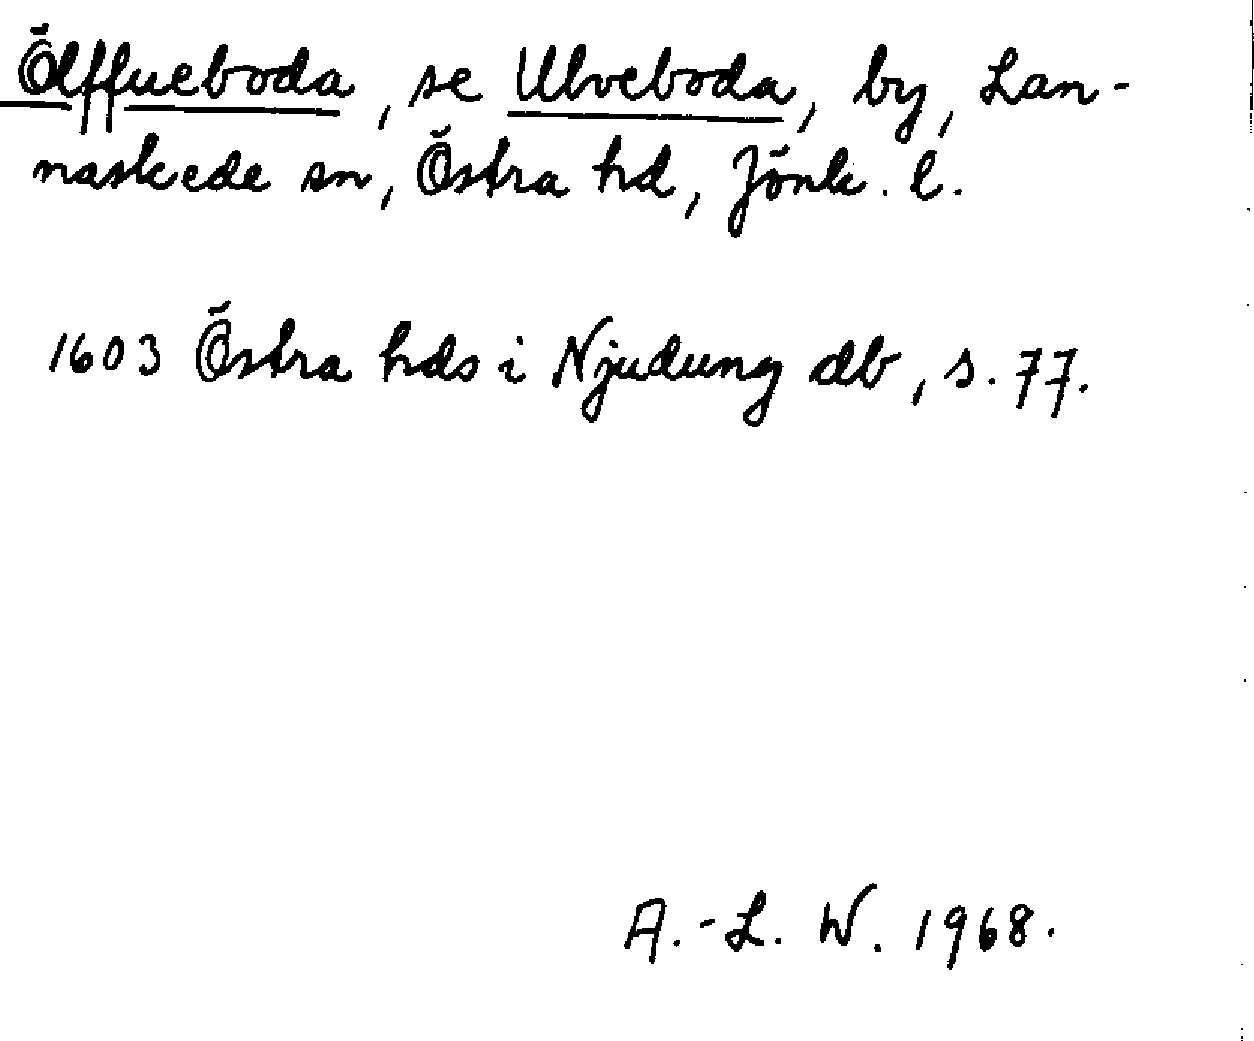 Ölffueboda, se Ulveboda, by, Lan-
naskede sn, Östra hd, Jönk. l.
1603 Östra hds i Njudung db, s. 77.
A.-L. W. 1968.